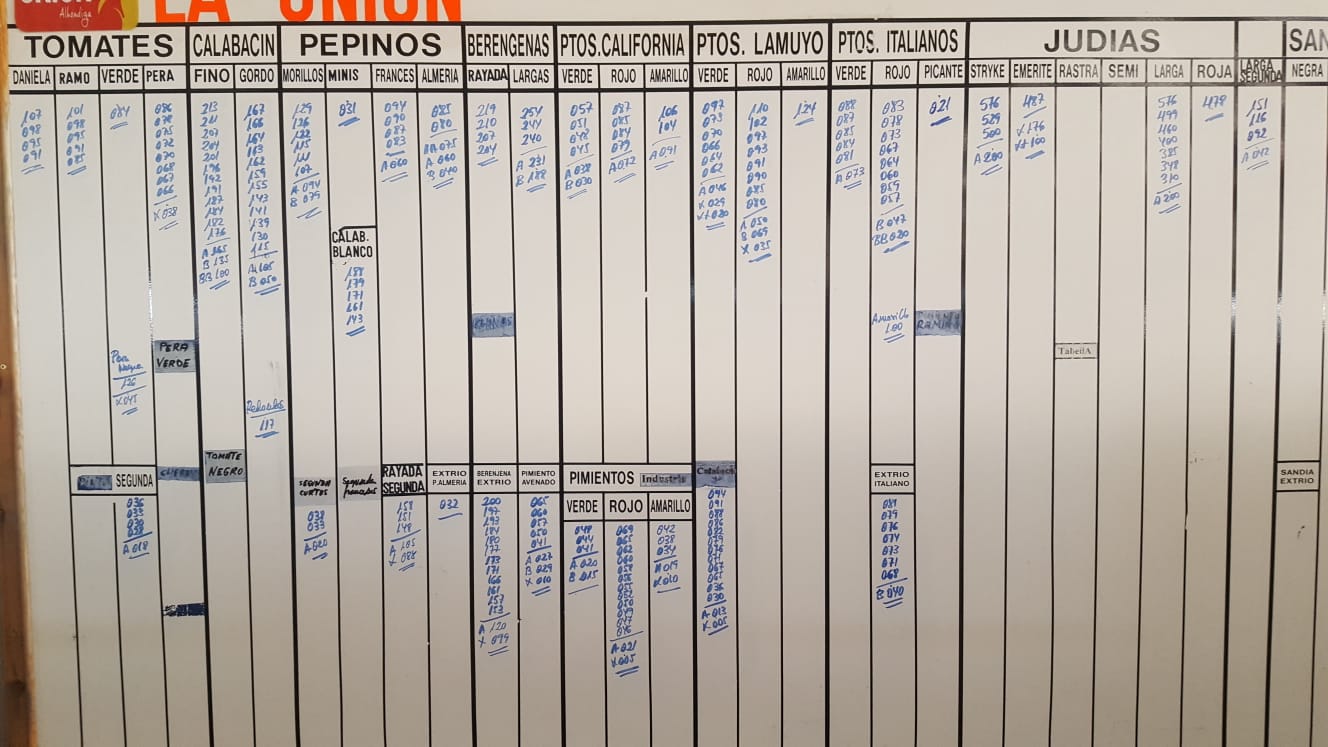 UNION
Alhondiga
LA UNION
TOMATES CALABACIN PEPINOS BERENGENAS PTOS.CALIFORNIA PTOS. LAMUYO PTOS. ITALIANOS JUDIAS SAN
DANIELA RAMO VERDE PERA FINO GORDO MORILLOS MINIS FRANCES ALMERIA RAYADA LARGAS VERDE ROJO AMARILLO VERDE ROJO AMARILLO VERDE ROJO PICANTE STRYKE EMERITE RASTRA SEMI LARGA ROJA LARGA SEGUNDA NEGRA
107
098
095
091
101
098
095
091
085
084
086
078
075
072
070
068
067
066
X 038
213
211
207
204
201
196
192
191
187
184
182
176
A 165
B 135
BB 100
167
166
164
163
162
159
155
143
141
139
130
115
A 105
B 050
129
126
122
115
111
107
A 094
B 079
031
094
090
087
083
A 060
085
080
AA 075
A 060
B 040
219
210
207
204
254
244
240
A 231
B 188
057
051
048
045
A 038
B 030
087
085
084
079
A 072
106
104
A 091
097
073
070
066
064
062
A 046
X 029
X+ 020
110
102
097
093
091
090
085
080
A 050
B 069
X 035
124
088
087
085
084
081
A 073
083
078
073
067
064
060
059
057
B 047
BB 020
021
576
529
500
A 200
487
X 176
X+ 100
576
499
460
400
385
348
310
A 200
478
151
116
092
A 042
CALAB.
BLANCO
188
179
171
161
143
Amarillo
100
RAMIN
TabellA
PERA
VERDE
Pera
Negra
126
X 045
Redondos
117
TOMATE
NEGRO
SEGUNDA
036
033
030
A 018
SEGUNDA
CORTOS
038
033
A 020
Segunda
franceses
RAYADA
SEGUNDA
158
151
148
A 105
X 086
EXTRIO
P.ALMERIA
032
BERENJENA
EXTRIO
200
197
193
184
180
177
173
171
166
161
157
153
A 120
X 099
PIMIENTO
AVENADO
065
060
057
050
041
A 027
B 029
X 010
PIMIENTOS Industria
VERDE ROJO AMARILLO
048
044
041
A 020
B 015
069
065
062
060
058
056
055
052
050
049
047
046
A 021
X 005
042
038
034
A 019
X 010
094
091
088
086
082
079
076
071
067
065
036
030
A 013
X 005
EXTRIO
ITALIANO
081
079
076
074
073
071
068
B 040
SANDIA
EXTRIO